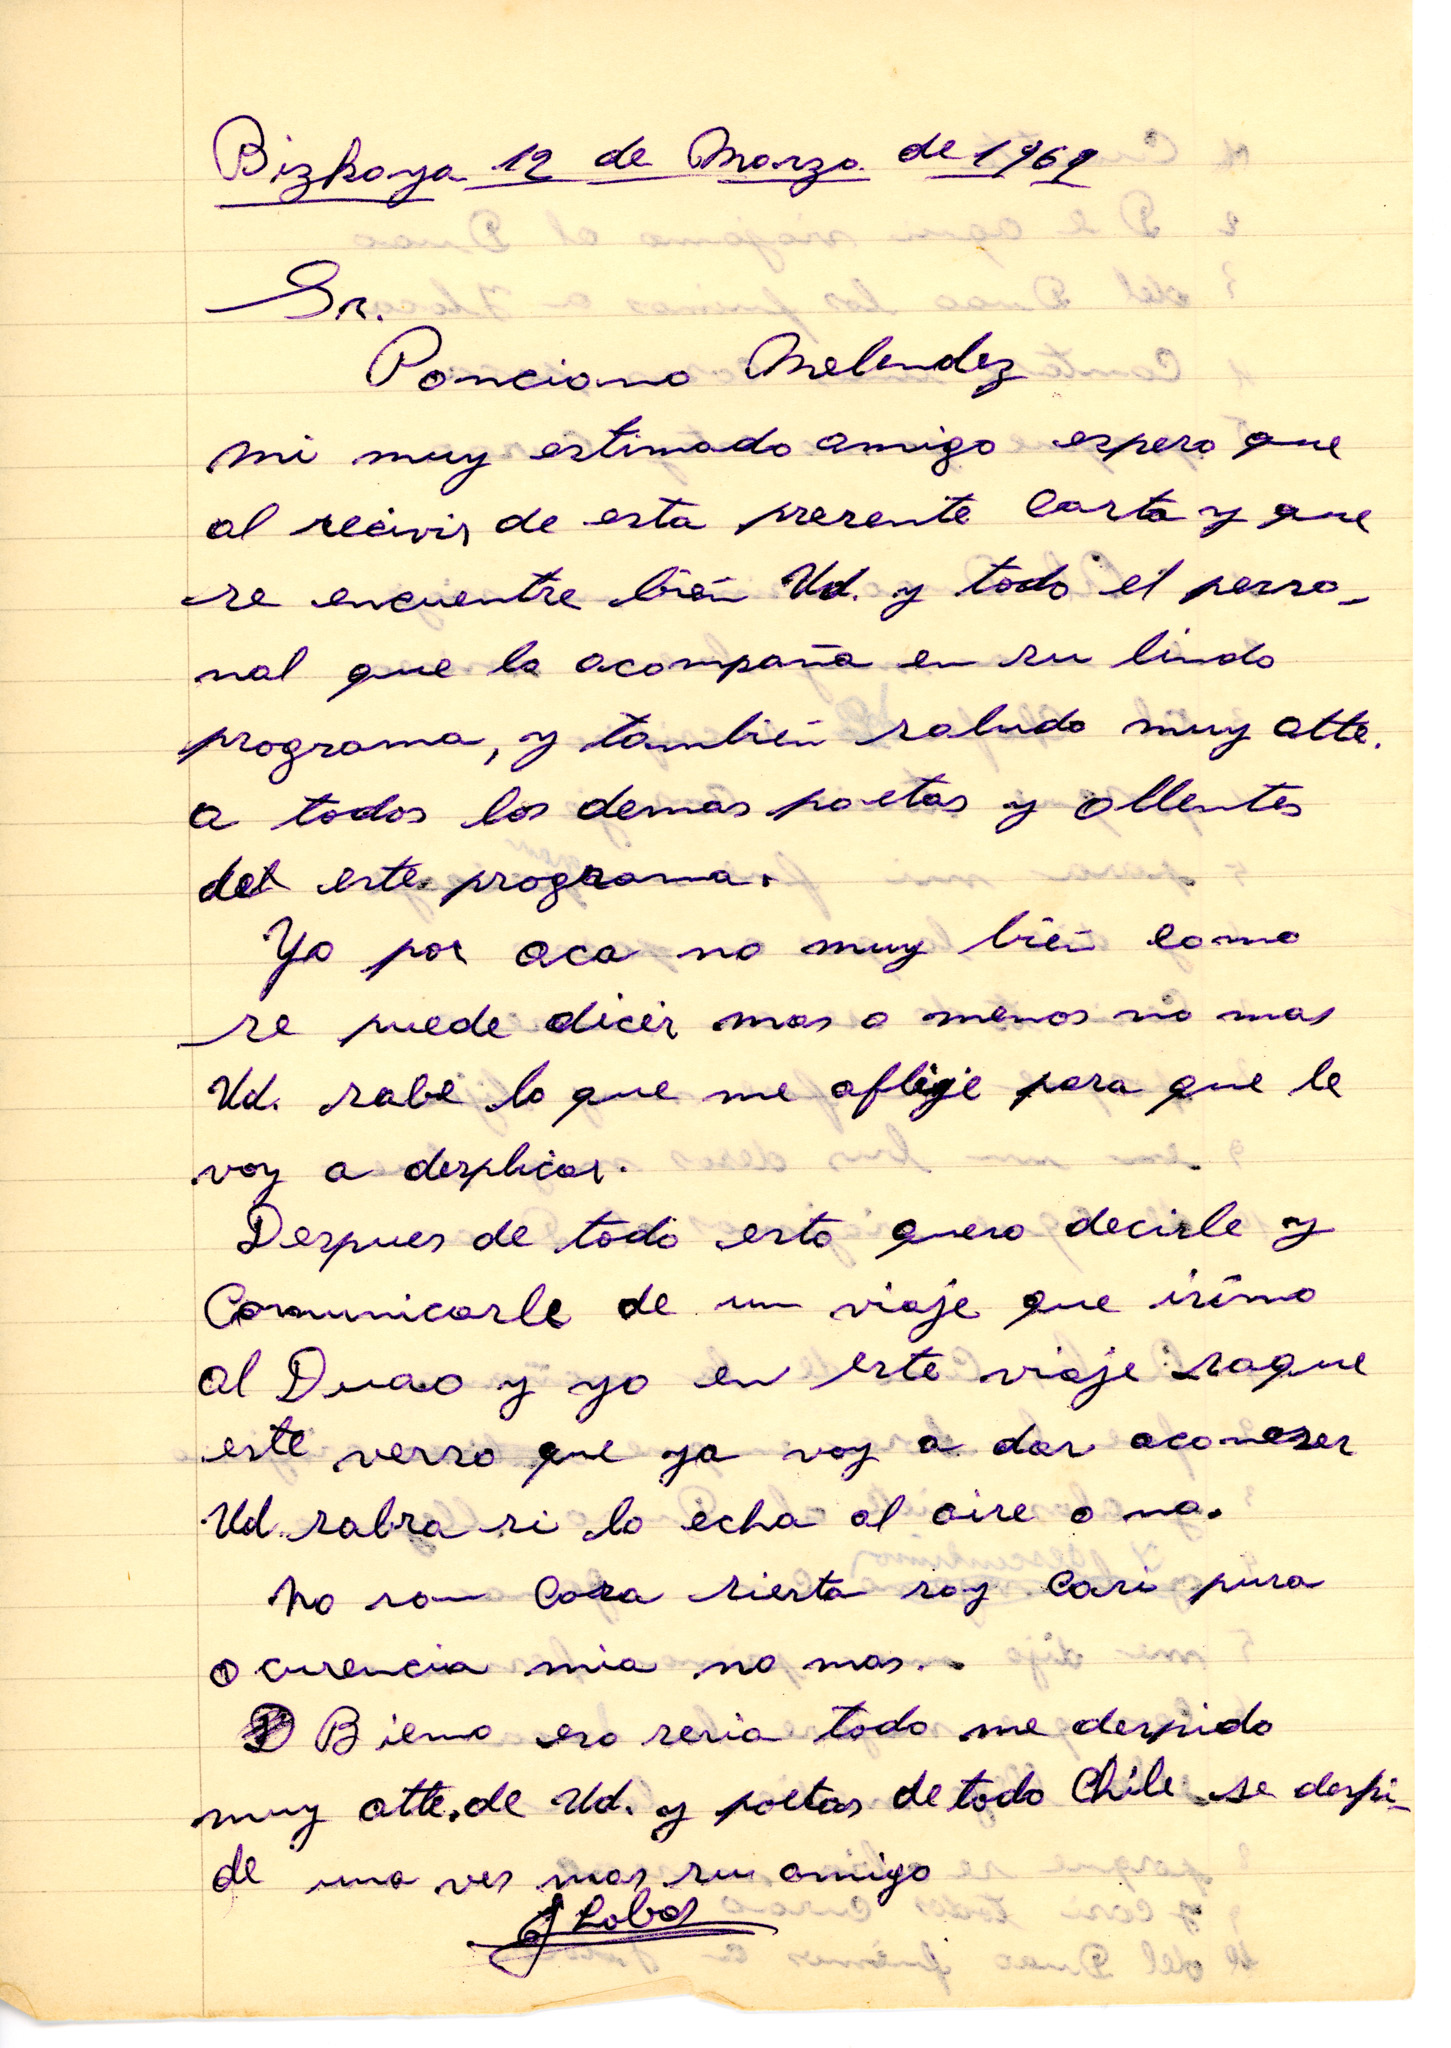 Bizkaya 12 de Marzo de 1969
Sr.
Ponciano Melendez
mi muy estimado amigo espero que
al recivir de esta presente carta y que
se encuentre bien Ud. y todo el perso-
nal que la acompaña en su lindo
programa, y tambien saludo muy atte.
a todos los demas poetas y ollentes
del este gran programa.
Yo por aca no muy bien como
se puede dicir mas o menos no mas
Ud. sabe lo que me aflije para que le
voy a desplicar.
Despues de todo esto quero decirle y
Comunicarle de un viaje que irimo
al Duao y yo en este viaje saque
este verso que ya voy a dar aconeser
Ud. sabra si lo echa al aire o no.
No son Cosa sierta soy casi pura
ocurencia mia no mas.
Bieno eso seria todo me despido
muy atte. de Ud. y poetas de todo Chile se despi-
de una ves mas su amigo
J Lobos